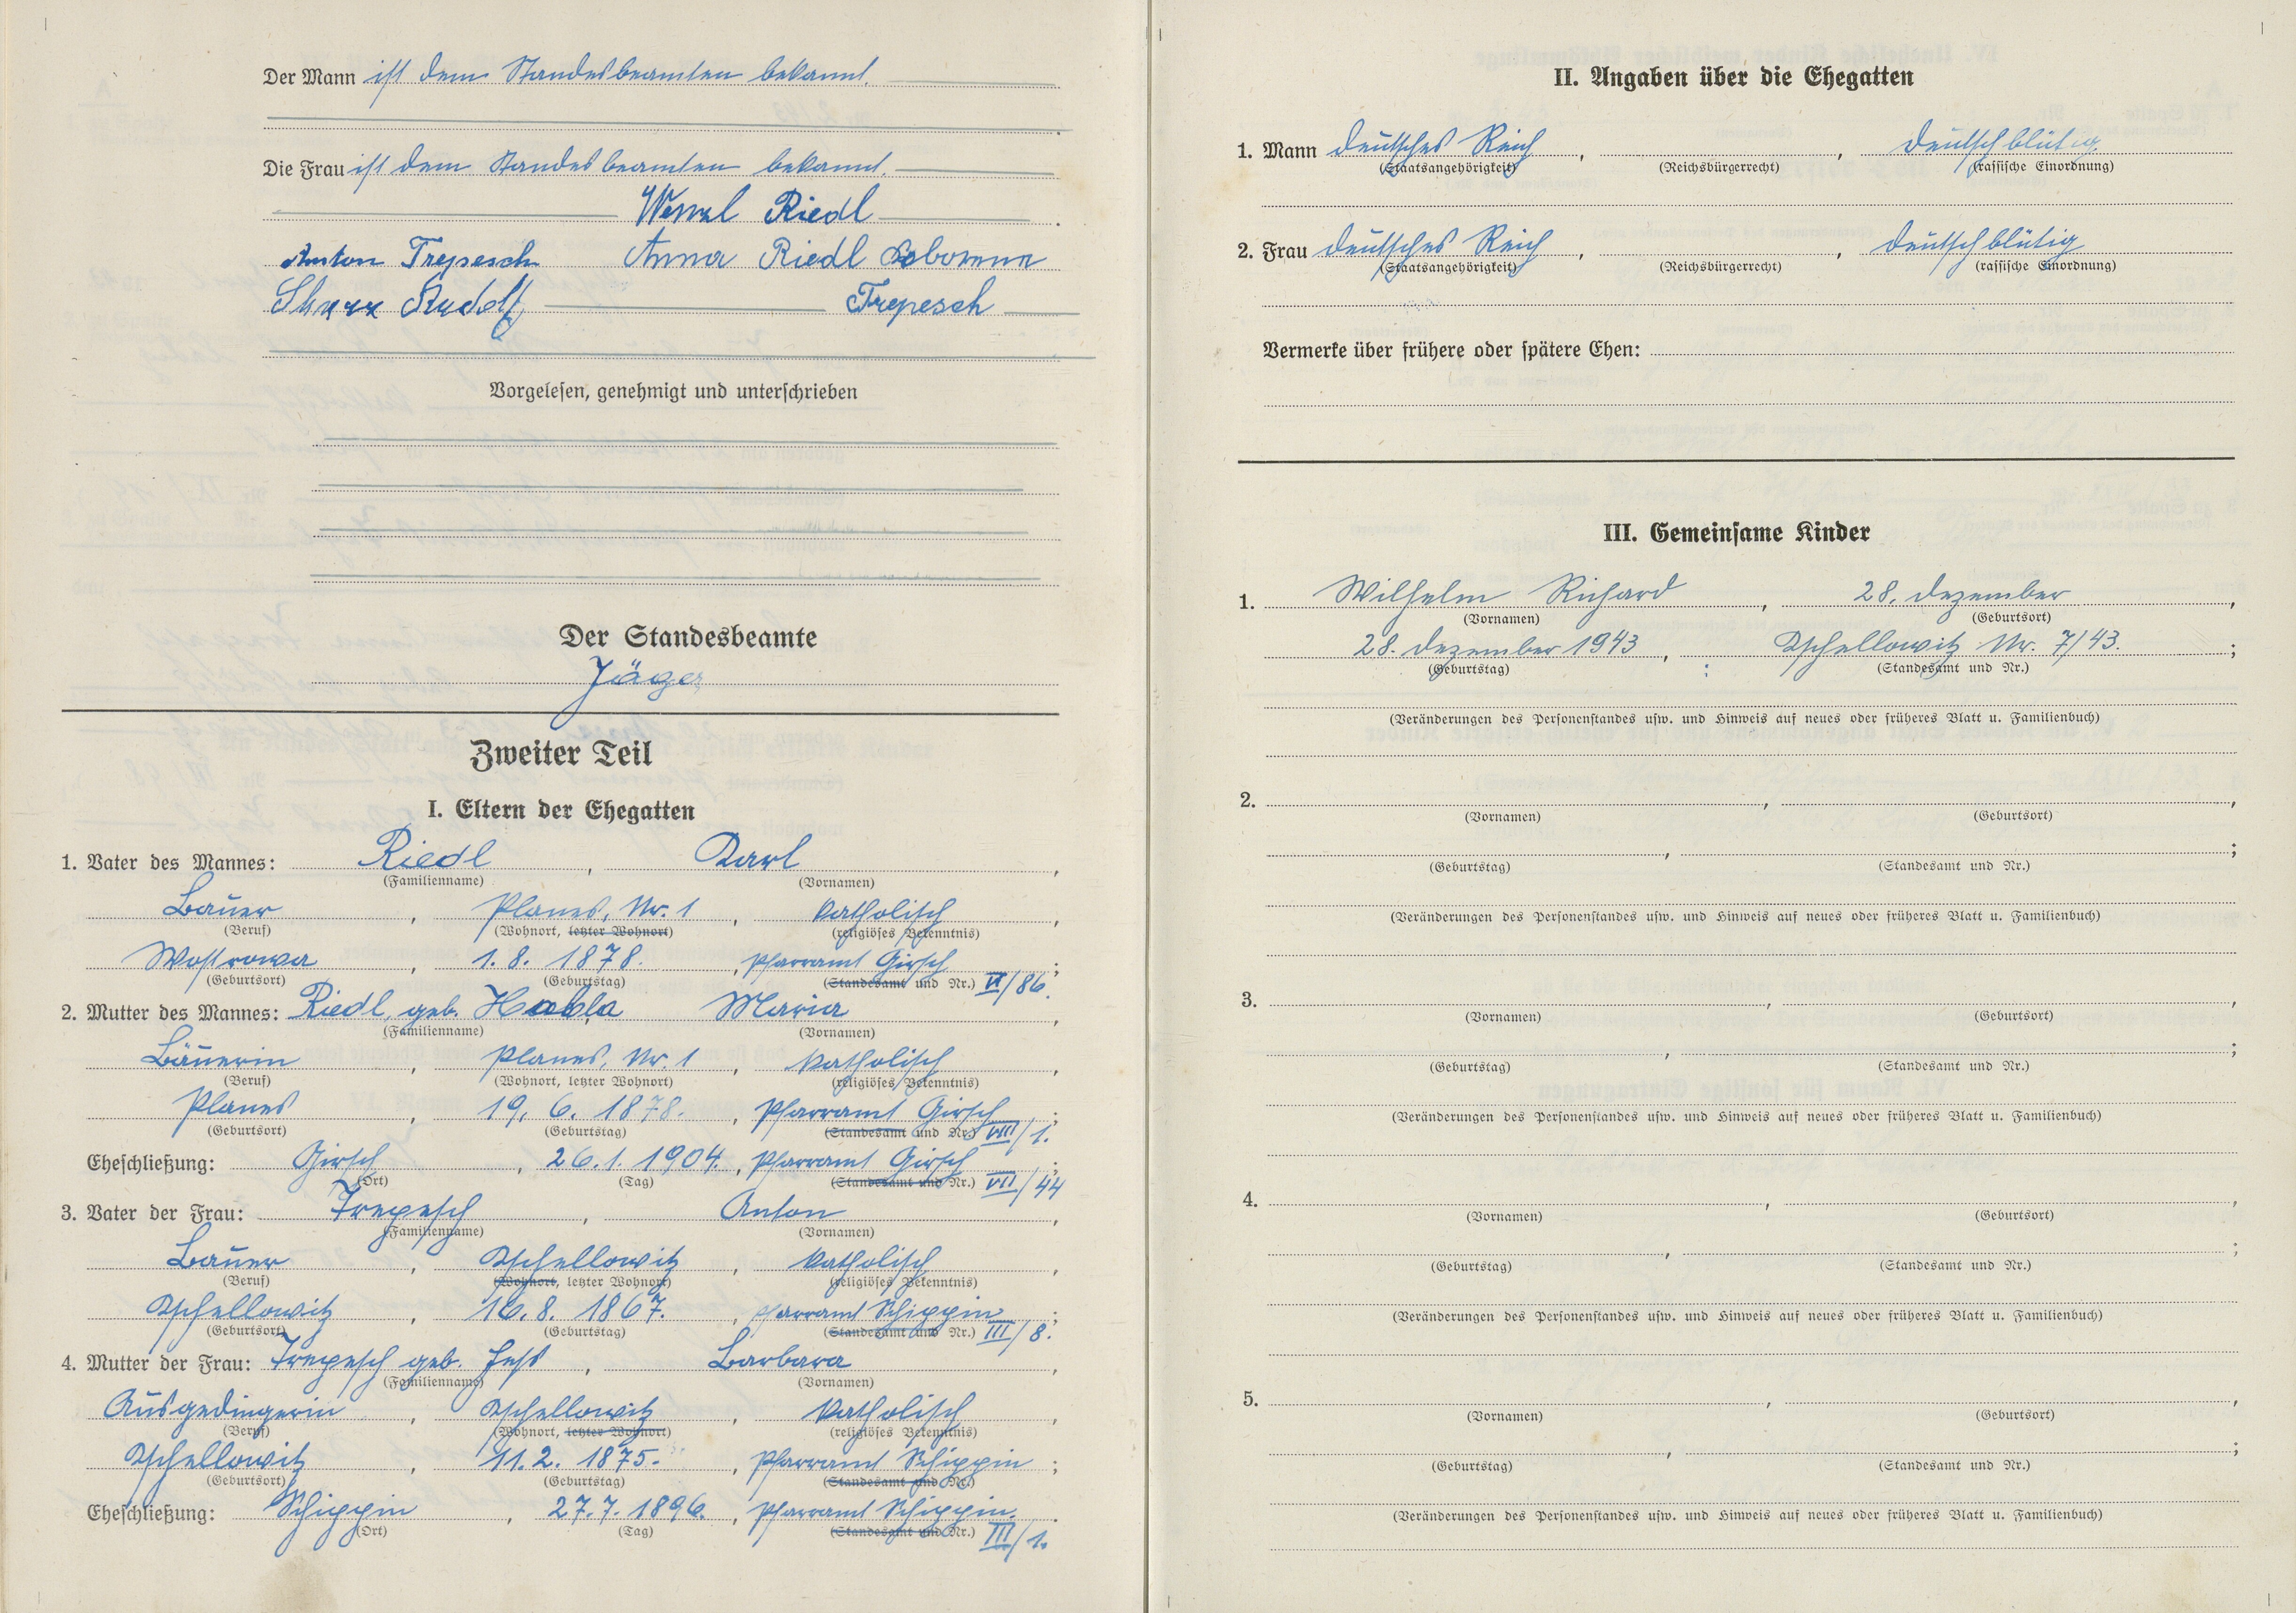 Der Mann ist dem Standesbeamten bekannt.
Die Frau ist dem Standesbeamten bekannt.
Wenzl Riedl
Anton Trepesch Anna Riedl Geborene
Rudolf Trepesch
Vorgelesen, genehmigt und unterschrieben
Der Standesbeamte
Jäger
Zweiter Teil
I. Eltern der Ehegatten
1. Vater des Mannes: Riedl, Karl,
(Familienname) (Vornamen)
Bauer, Planes, Nr. 1, katholisch,
(Beruf) (Wohnort, letzter Wohnort) (religiöses Bekenntnis)
Wostrowa, 1. 8. 1878., Pfarramt Girsch VI/86.;
(Geburtsort) (Geburtstag) (Standesamt und Nr.)
2. Mutter des Mannes: Riedl, geb. Habla Maria,
(Familienname) (Vornamen)
Bäuerin, Planes, Nr. 1, katholisch,
(Beruf) (Wohnort, letzter Wohnort) (religiöses Bekenntnis)
Planes, 19. 6. 1878., Pfarramt Girsch VIII/1.;
(Geburtsort) (Geburtstag) (Standesamt und Nr.)
Eheschließung: Girsch, 26. 1. 1904., Pfarramt Girsch VII/44;
(Ort) (Tag) (Standesamt und Nr.)
3. Vater der Frau: Trepesch, Anton,
(Familienname) (Vornamen)
Bauer, Tschellowitz, katholisch,
(Beruf) (Wohnort, letzter Wohnort) (religiöses Bekenntnis)
Tschellowitz, 16. 8. 1867., Pfarramt Schippin III/8.;
(Geburtsort) (Geburtstag) (Standesamt und Nr.)
4. Mutter der Frau: Trepesch geb. Heß, Barbara,
(Familienname) (Vornamen)
Ausgedingerin, Tschellowitz, katholisch,
(Beruf) (Wohnort, letzter Wohnort) (religiöses Bekenntnis)
Tschellowitz, 11. 2. 1875., Pfarramt Schippin;
(Geburtsort) (Geburtstag) (Standesamt und Nr.)
Eheschließung: Schippin, 27. 7. 1896., Pfarramt Schippin. III/1.
(Ort) (Tag) (Standesamt und Nr.)
II. Angaben über die Ehegatten
1. Mann deutsches Reich, , deutschblütig
(Staatsangehörigkeit) (Reichsbürgerrecht) (rassische Einordnung)
2. Frau deutsches Reich, , deutschblütig
(Staatsangehörigkeit) (Reichsbürgerrecht) (rassische Einordnung)
Vermerke über frühere oder spätere Ehen:
III. Gemeinsame Kinder
1. Wilhelm Richard, 28. Dezember,
(Vornamen) (Geburtsort)
28. Dezember 1943, Tschellowitz Nr. 7/43.;
(Geburtstag) (Standesamt und Nr.)
(Veränderungen des Personenstandes usw. und Hinweis auf neues oder früheres Blatt u. Familienbuch)
2. , ,
(Vornamen) (Geburtsort)
, ;
(Geburtstag) (Standesamt und Nr.)
(Veränderungen des Personenstandes usw. und Hinweis auf neues oder früheres Blatt u. Familienbuch)
3. , ,
(Vornamen) (Geburtsort)
, ;
(Geburtstag) (Standesamt und Nr.)
(Veränderungen des Personenstandes usw. und Hinweis auf neues oder früheres Blatt u. Familienbuch)
4. , ,
(Vornamen) (Geburtsort)
, ;
(Geburtstag) (Standesamt und Nr.)
(Veränderungen des Personenstandes usw. und Hinweis auf neues oder früheres Blatt u. Familienbuch)
5. , ,
(Vornamen) (Geburtsort)
, ;
(Geburtstag) (Standesamt und Nr.)
(Veränderungen des Personenstandes usw. und Hinweis auf neues oder früheres Blatt u. Familienbuch)